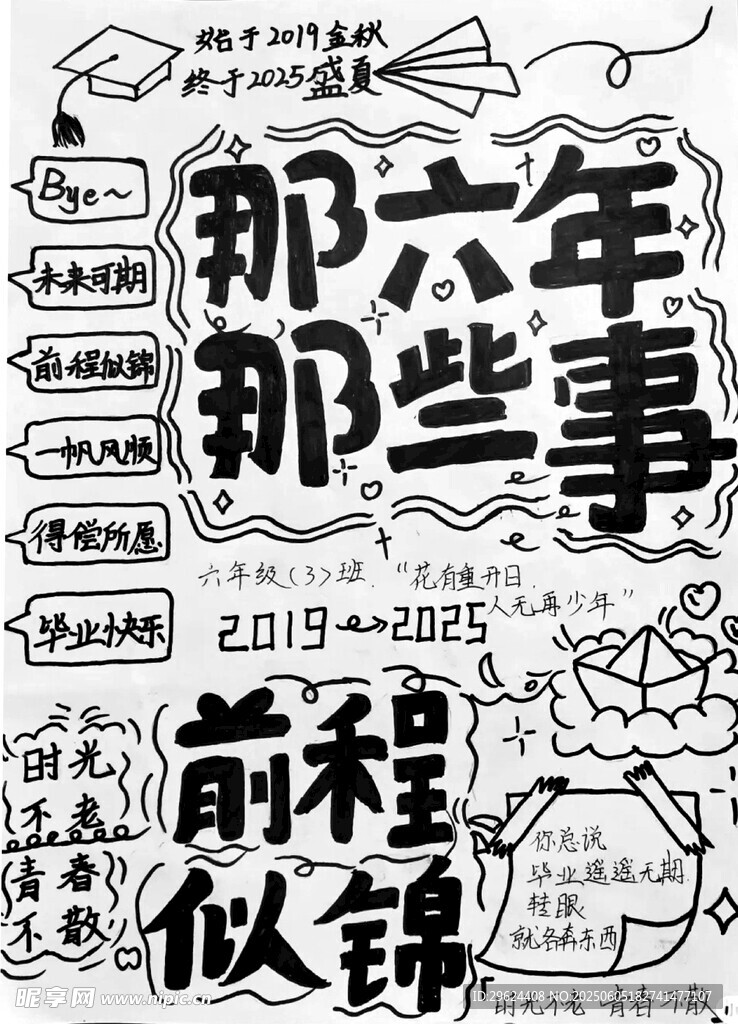 始于2019金秋
终于2025盛夏
Bye~
未来可期
前程似锦
一帆风顺
得偿所愿
毕业快乐
那六年
那些事
六年级(3)班.“花有重开日.
人无再少年”
2019 → 2025
前程
似锦
时光
不老
青春
不散
你总说
毕业遥遥无期.
转眼
就各奔东西
「时光不老 青春不散」
昵享网 www.nipic.cn
ID:29624408 NO:20250605182741477107